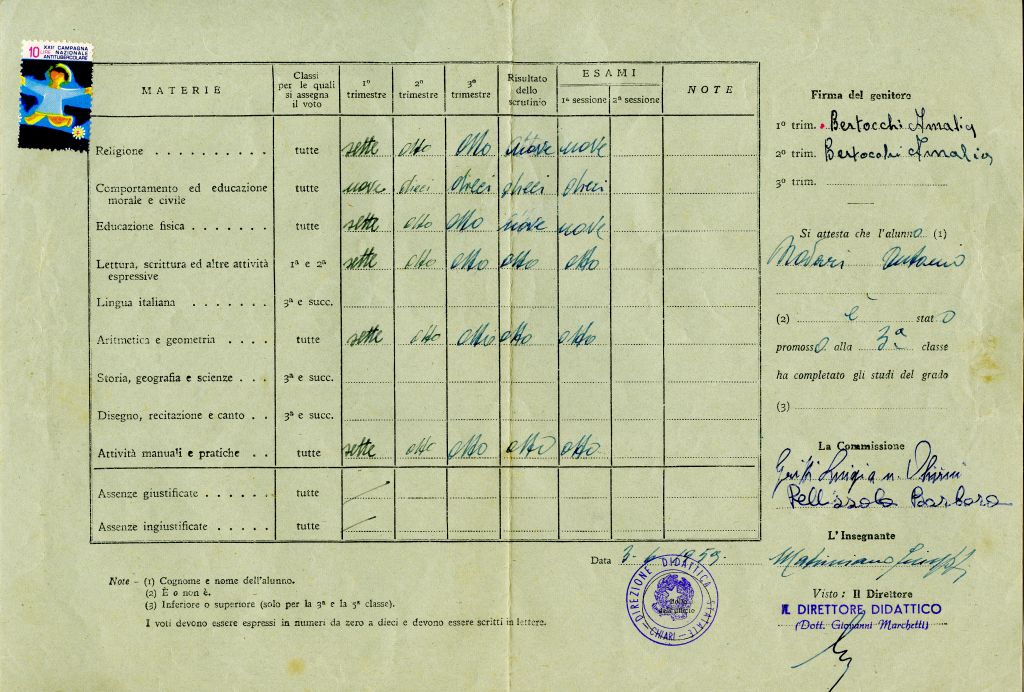 10 LIRE XXIIª CAMPAGNA NAZIONALE ANTITUBERCOLARE
MATERIE
Classi per le quali si assegna il voto
1º trimestre
2º trimestre
3º trimestre
Risultato dello scrutinio
ESAMI
1ª sessione
2ª sessione
NOTE
Religione . . . . . . . . . . . tutte sette otto otto nove nove
Comportamento ed educazione
morale e civile tutte nove dieci dieci dieci dieci
Educazione fisica . . . . . . . tutte sette otto otto nove nove
Lettura, scrittura ed altre attività
espressive 1ª e 2ª sette otto otto otto otto
Lingua italiana . . . . . . . 3ª e succ.
Aritmetica e geometria . . . . . tutte sette otto otto otto otto
Storia, geografia e scienze . . . 3ª e succ.
Disegno, recitazione e canto . . 3ª e succ.
Attività manuali e pratiche . . tutte sette otto otto otto otto
Assenze giustificate . . . . . . tutte
Assenze ingiustificate . . . . . tutte
Note - (1) Cognome e nome dell'alunno.
(2) È o non è.
(3) Inferiore o superiore (solo per la 3ª e la 5ª classe).
I voti devono essere espressi in numeri da zero a dieci e devono essere scritti in lettere.
Data 3-6-1959.
DIREZIONE DIDATTICA STATALE
CHIARI
Firma del genitore
1º trim. Bertocchi Amalia
2º trim. Bertocchi Amalia
3º trim.
Si attesta che l'alunno (1)
Antonio
(2) è stato
promosso alla 3ª classe
ha completato gli studi del grado
(3)
La Commissione
Barbara
L'Insegnante
Visto: Il Direttore
IL DIRETTORE DIDATTICO
(Dott. Giovanni Marchetti)